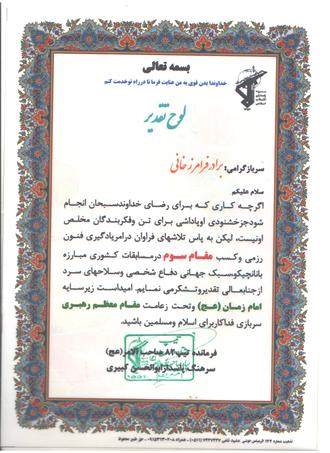 بسمه تعالی
خداوندا بدن قوی به من عنایت فرما تا در راه تو خدمت کنم
لوح تقدیر
سرباز گرامی: برادر فرامرز خانی
سلام علیکم
اگرچه کاری که برای رضای خداوندسبحان انجام
شودجزخشنودی اوپاداشی برای تن وفکربندگان مخلص
اونیست، لیکن به پاس تلاشهای فراوان درامریادگیری فنون
رزمی وکسب مقام سوم درمسابقات کشوری مبارزه
بانانچیکوسبک جهانی دفاع شخصی وسلاحهای سرد
ازجنابعالی تقدیروتشکرمی نمایم. امیداست زیرسایه
امام زمان (عج) وتحت زعامت مقام معظم رهبری
سربازی فداکاربرای اسلام ومسلمین باشید.
فرمانده تیپ ۸۲ صاحب الامر(عج)
سرهنگ پاسدارابوالحسن کبیری